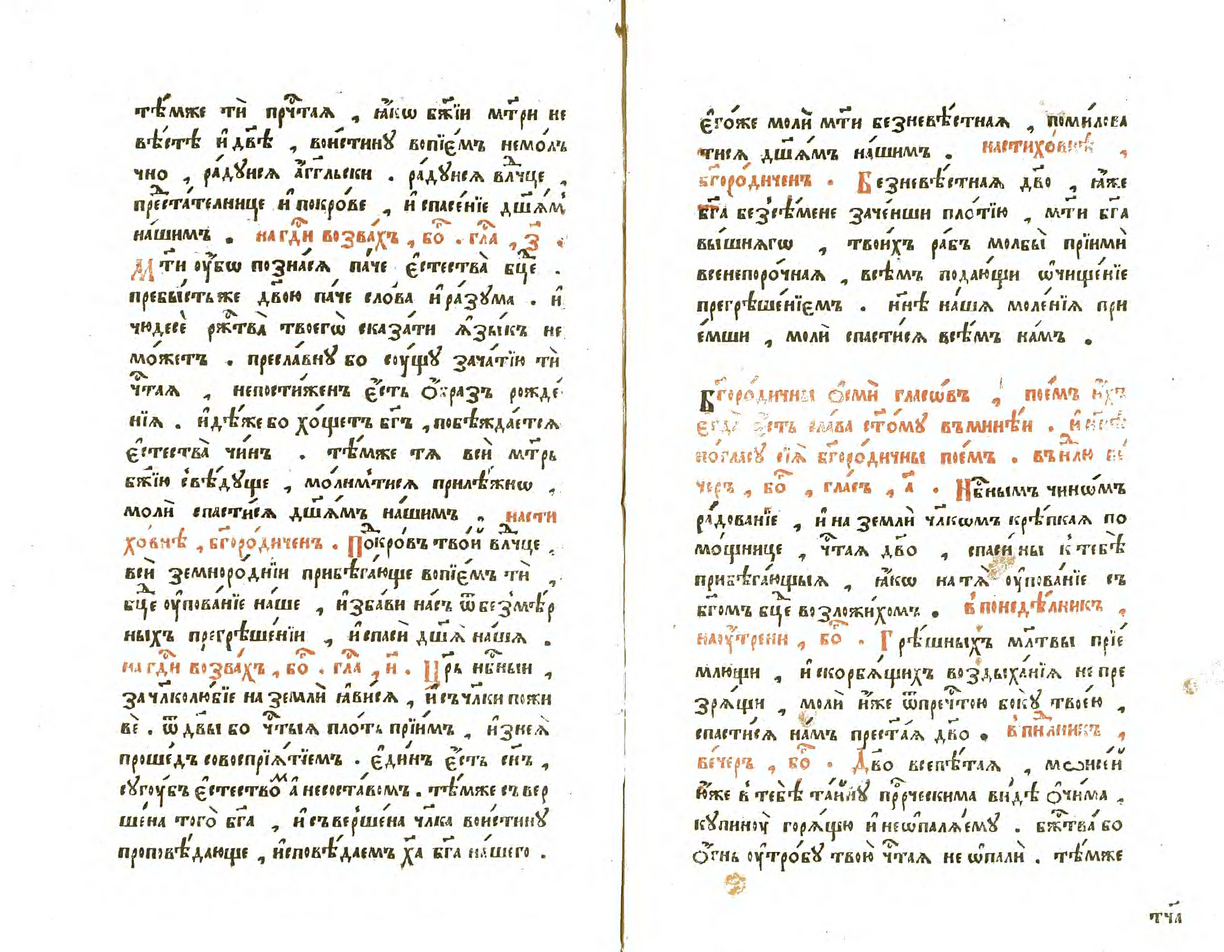 тѣ́мже тѝ прчⷭтая , ꙗ҆́кѡ бж҃їи мт҃ри не
вѣ́стѣ и҆ дв҃ѣ , вои́стинꙋ вопїе́мъ немо́лъ
чно , ра́дꙋисѧ а҆́гг҃льски . ра́дꙋисѧ влⷣчце ,
преⷣста́телнице и҆ покро́ве , и҆ спасе́нїе дш҃ѧ́мъ
на́шимъ . на гдⷭ҇и возва́хъ , боⷢ . глаⷭ , з҃ .
Мт҃и ᲂу҆́бѡ позна́сѧ па́че є҆стества̀ бцⷣе .
пребы́стьже дв҃ою па́че сло́ва и҆ ра́зꙋма . и҆
чюдесѐ ржⷭ҇тва̀ твоегѡ̀ сказа́ти ѧ҆зы́къ не
мо́жетъ . пресла́внꙋ бо сꙋ́щꙋ зача́тїю тѝ
чⷭ҇таѧ , непости́женъ є҆́сть ѻ҆́бразъ рожде́
нїѧ . и҆дѣ́же бо хо́щетъ бг҃ъ , побѣжда́етсѧ
є҆стества̀ чи́нъ . тѣ́мже тѧ всѝ мт҃рь
бж҃їю свѣ́дꙋще , мо́лимтисѧ прилѣ́жнѡ ,
молѝ спасти́сѧ дш҃ѧ́мъ на́шимъ . насти
хо́внѣ , бг҃оро́диченъ . Покро́въ тво́й влⷣчце ,
всѝ земноро́днїи прибѣга́юще вопїе́мъ тѝ ,
бцⷣе ᲂу҆пова́нїе на́ше , и҆зба́ви на́съ ѿ безмѣ́р
ныхъ прегрѣше́нїи , и҆ спасѝ дш҃ѧ̀ на́шѧ .
на гдⷭ҇и возва́хъ , боⷢ . глаⷭ , и҃ . Цр҃ь нбⷭ҇ныи ,
за чл҃колю́бїе на землѝ ꙗ҆ви́сѧ , и҆ съ чл҃ки пожи
вѐ . ѿ дв҃ы бо чⷭ҇тыѧ пло́ть прїи́мъ , и҆знеѧ̀
проше́дъ совоспрїѧ́тїемъ . є҆ди́нъ є҆́сть сн҃ъ ,
сꙋгꙋ́бъ є҆стество́мъ а҆ несоста́вомъ . тѣ́мже съвер
ше́на того̀ бг҃а , и҆ съверше́на чл҃ка вои́стинꙋ
проповѣ́дающе , и҆сповѣ́даемъ хⷭ҇а бг҃а на́шего .
є҆го́же молѝ мт҃и безневѣ́стнаѧ , поми́лова
тисѧ дш҃ѧ́мъ на́шимъ . настихо́внѣ ,
бг҃оро́диченъ . Безневѣ́стнаѧ дв҃о , ꙗ҆́же
бг҃а безсѣ́мене заче́нши пло́тїю , мт҃и бг҃а
вы́шнѧгѡ , твои́хъ ра́бъ молбы̀ прїимѝ
всенепоро́чнаѧ , всѣ́мъ подаю́щи ѡ҆чище́нїе
прегрѣше́нїемъ . нн҃ѣ на́шѧ моле́нїѧ при
е́мши , молѝ спасти́сѧ всѣ́мъ на́мъ .
Бг҃оро́дичны ѻ҆смѝ гласѡ́въ , пое́мъ и҆́хъ
є҆гда̀ є҆́сть сла́ва ст҃о́мꙋ въ мине́и .
погла́сꙋ сїѧ̀ бг҃оро́дичны пое́мъ . въ нлю ве́
черъ , боⷢ , гла́съ , а҃ . Нбⷭ҇нымъ чинѡ́мъ
ра́дованїе , и҆ на землѝ чл҃кѡмъ крѣ́пкаѧ по
мо́щнице , чⷭ҇таѧ дв҃о , спасѝ ны к тебѣ̀
прибѣга́ющыѧ , ꙗ҆́кѡ на тѧ̀ ᲂу҆пова́нїе съ
бг҃омъ бцⷣе возложи́хомъ . в понедѣ́лникъ ,
наᲂу҆́трени , боⷢ . Грѣ́шныхъ мл҃твы прїе́
млющи , и҆ скорбѧ́щихъ воздыха́нїѧ не пре
зрѧ́щи , молѝ и҆́же ѿ пречⷭтою бокꙋ̀ твоею̀ ,
спасти́сѧ на́мъ прест҃а́ѧ дв҃о . в пн҃лникъ ,
ве́черъ , боⷢ . Дв҃о всепѣ́таѧ , мѡѵсе́й
ю҆́же в тебѣ̀ та́йнꙋ прⷪ҇рческима ви́дѣ ѻ҆чи́ма ,
кꙋпинꙋ̀ горѧ́щꙋю и҆ неѡпалѧ́емꙋ . бжⷭ҇тва́ бо
ѻ҆́гнь ᲂу҆тро́бꙋ твою̀ чⷭ҇таѧ не ѡ҆палѝ . тѣ́мже
тч҃а